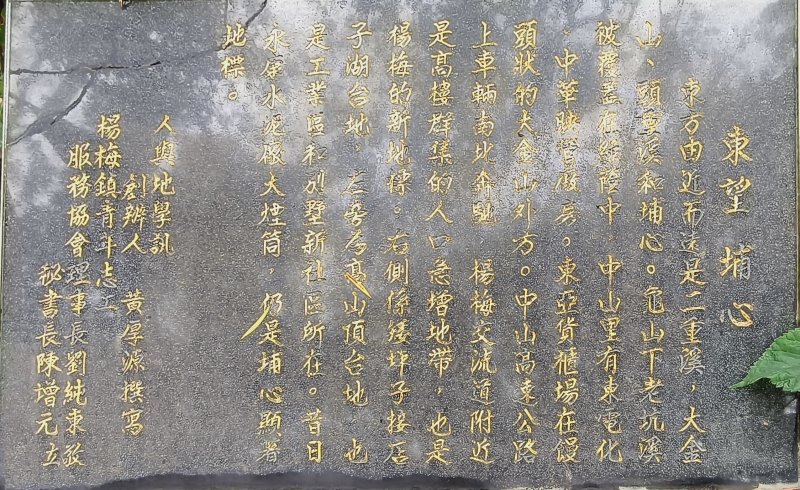 東望埔心
東方由近而遠是二重溪，大金
山、頭重溪和埔心。龜山下老坑溪
被覆蓋在綠蔭中，中山里有東電化
、中華映管廠房。東亞貨櫃場在饅
頭狀的大金山外方。中山高速公路
上車輛南北奔馳，楊梅交流道附近
是高樓群集的人口急增地帶，也是
楊梅的新地標。右側係矮坪子接店
子湖台地，左旁為高山頂台地，也
是工業區和別墅新社區所在。昔日
永康水泥廠大煙筒，仍是埔心顯著
地標。
人與地學訊
創辦人　黃厚源撰寫
楊梅鎮青年志工
服務協會理事長劉純東敬
秘書長陳增元立